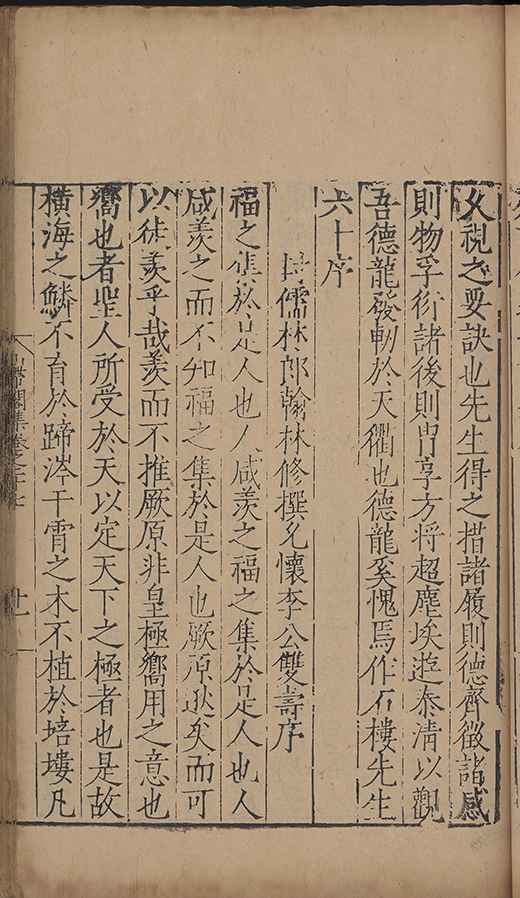 久視之要訣也先生得之措諸履則德齊徵諸感
則物孚衍諸後則胄享方将超塵埃遊泰清以觀
吾德龍發軔於天衢也德龍奚愧焉作石樓先生
六十序
封儒林郎翰林修撰允懷李公雙壽序
福之集於是人也人咸羨之福之集於是人也人
咸羨之而不知福之集於是人也厥原逖矣而可
以徒羨乎哉羨而不推厥原非皇極嚮用之意也
嚮也者聖人所受於天以定天下之極者也是故
橫海之鱗不育於蹄涔干霄之木不植於培塿凡
集卷之十七
十一